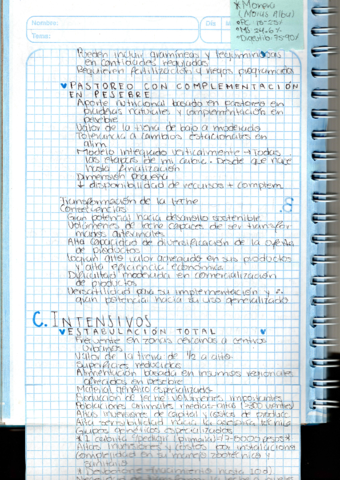 Nombre:
Tema:
Día
* Morera
(Morus Alba)
*PC: 15-25%
*MS 24.6%
*Digestib. 75-90%
Pueden incluir gramíneas y leguminosas
en cantidades reguladas
Requieren fertilización y riegos programados
♥PASTOREO CON COMPLEMENTACIÓN
EN PESEBRE
Aporte nutricional basado en pastoreo en
praderas naturales y complementación en
pesebre
Valor de la tierra de bajo a moderado
Tolerancia a cambios estacionales en
alim
Modelo integrado verticalmente → Todas
las etapas de mi cabra. Desde que nace
hasta finalización
Dimensión pequeña
↓ disponibilidad de recursos + complem.
Transformación de la leche
Consecuencias
Gran potencial hacia desarrollo sostenible
Volúmenes de leche capaces de ser transfor
mados artesanales
Alta capacidad de diversificación de la oferta
de productos
Logran alto valor agregado en sus productos
y alta eficiencia económica
Dificultad moderada en comercialización
de productos
Versatilidad para su implementación y
gran potencial hacia su uso generalizado
C. INTENSIVOS
♥ESTABULACIÓN TOTAL ♥
Frecuente en zonas cercanas a centros
urbanos
Valor de la tierra de ½ a alto
Superficies reducidas
Alimentación basada en insumos regionales
ofrecidos en pesebre
Material genético especializado
Producción de leche: volúmenes importantes
Poblaciones animales medias-altas (~300 vientres)
Altas inversiones de capital y costos de produc.
Alta sensibilidad hacia la asesoría técnica
Grupos genéticos especializados
Altas inversiones y costos por instalaciones